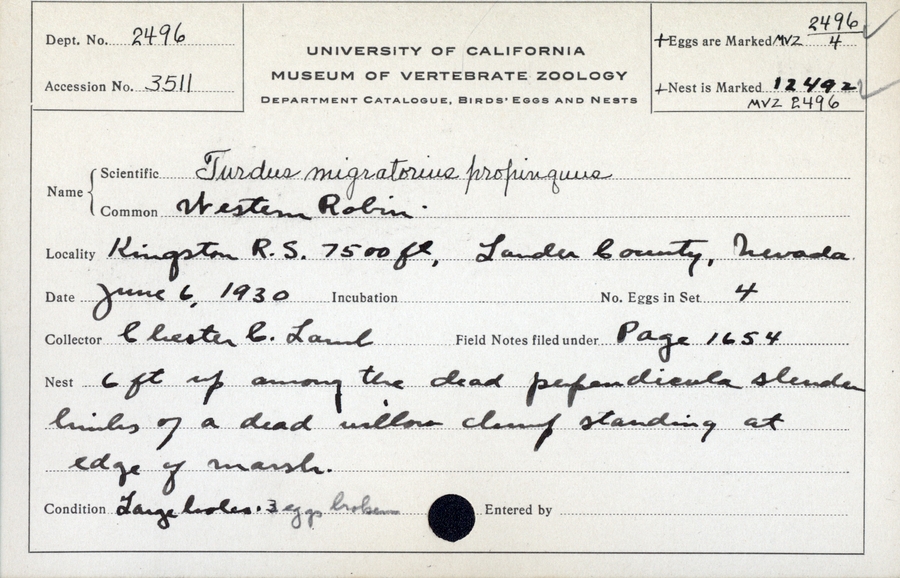 Dept. No. 2496
Accession No. 3511
UNIVERSITY OF CALIFORNIA
MUSEUM OF VERTEBRATE ZOOLOGY
DEPARTMENT CATALOGUE, BIRDS' EGGS AND NESTS
+Eggs are Marked MVZ 2496/4
+Nest is Marked 12492
MVZ 2496
Name
Scientific Turdus migratorius propinquus
Common Western Robin.
Locality Kingston R.S. 7500 ft, Lander County, Nevada.
Date June 6, 1930 Incubation No. Eggs in Set 4
Collector Chester C. Lamb Field Notes filed under Page 1654
Nest 6 ft up among the dead pependicula slender
limbs of a dead willow clump standing at
edge of marsh.
Condition Large holes. 3 eggs broken Entered by